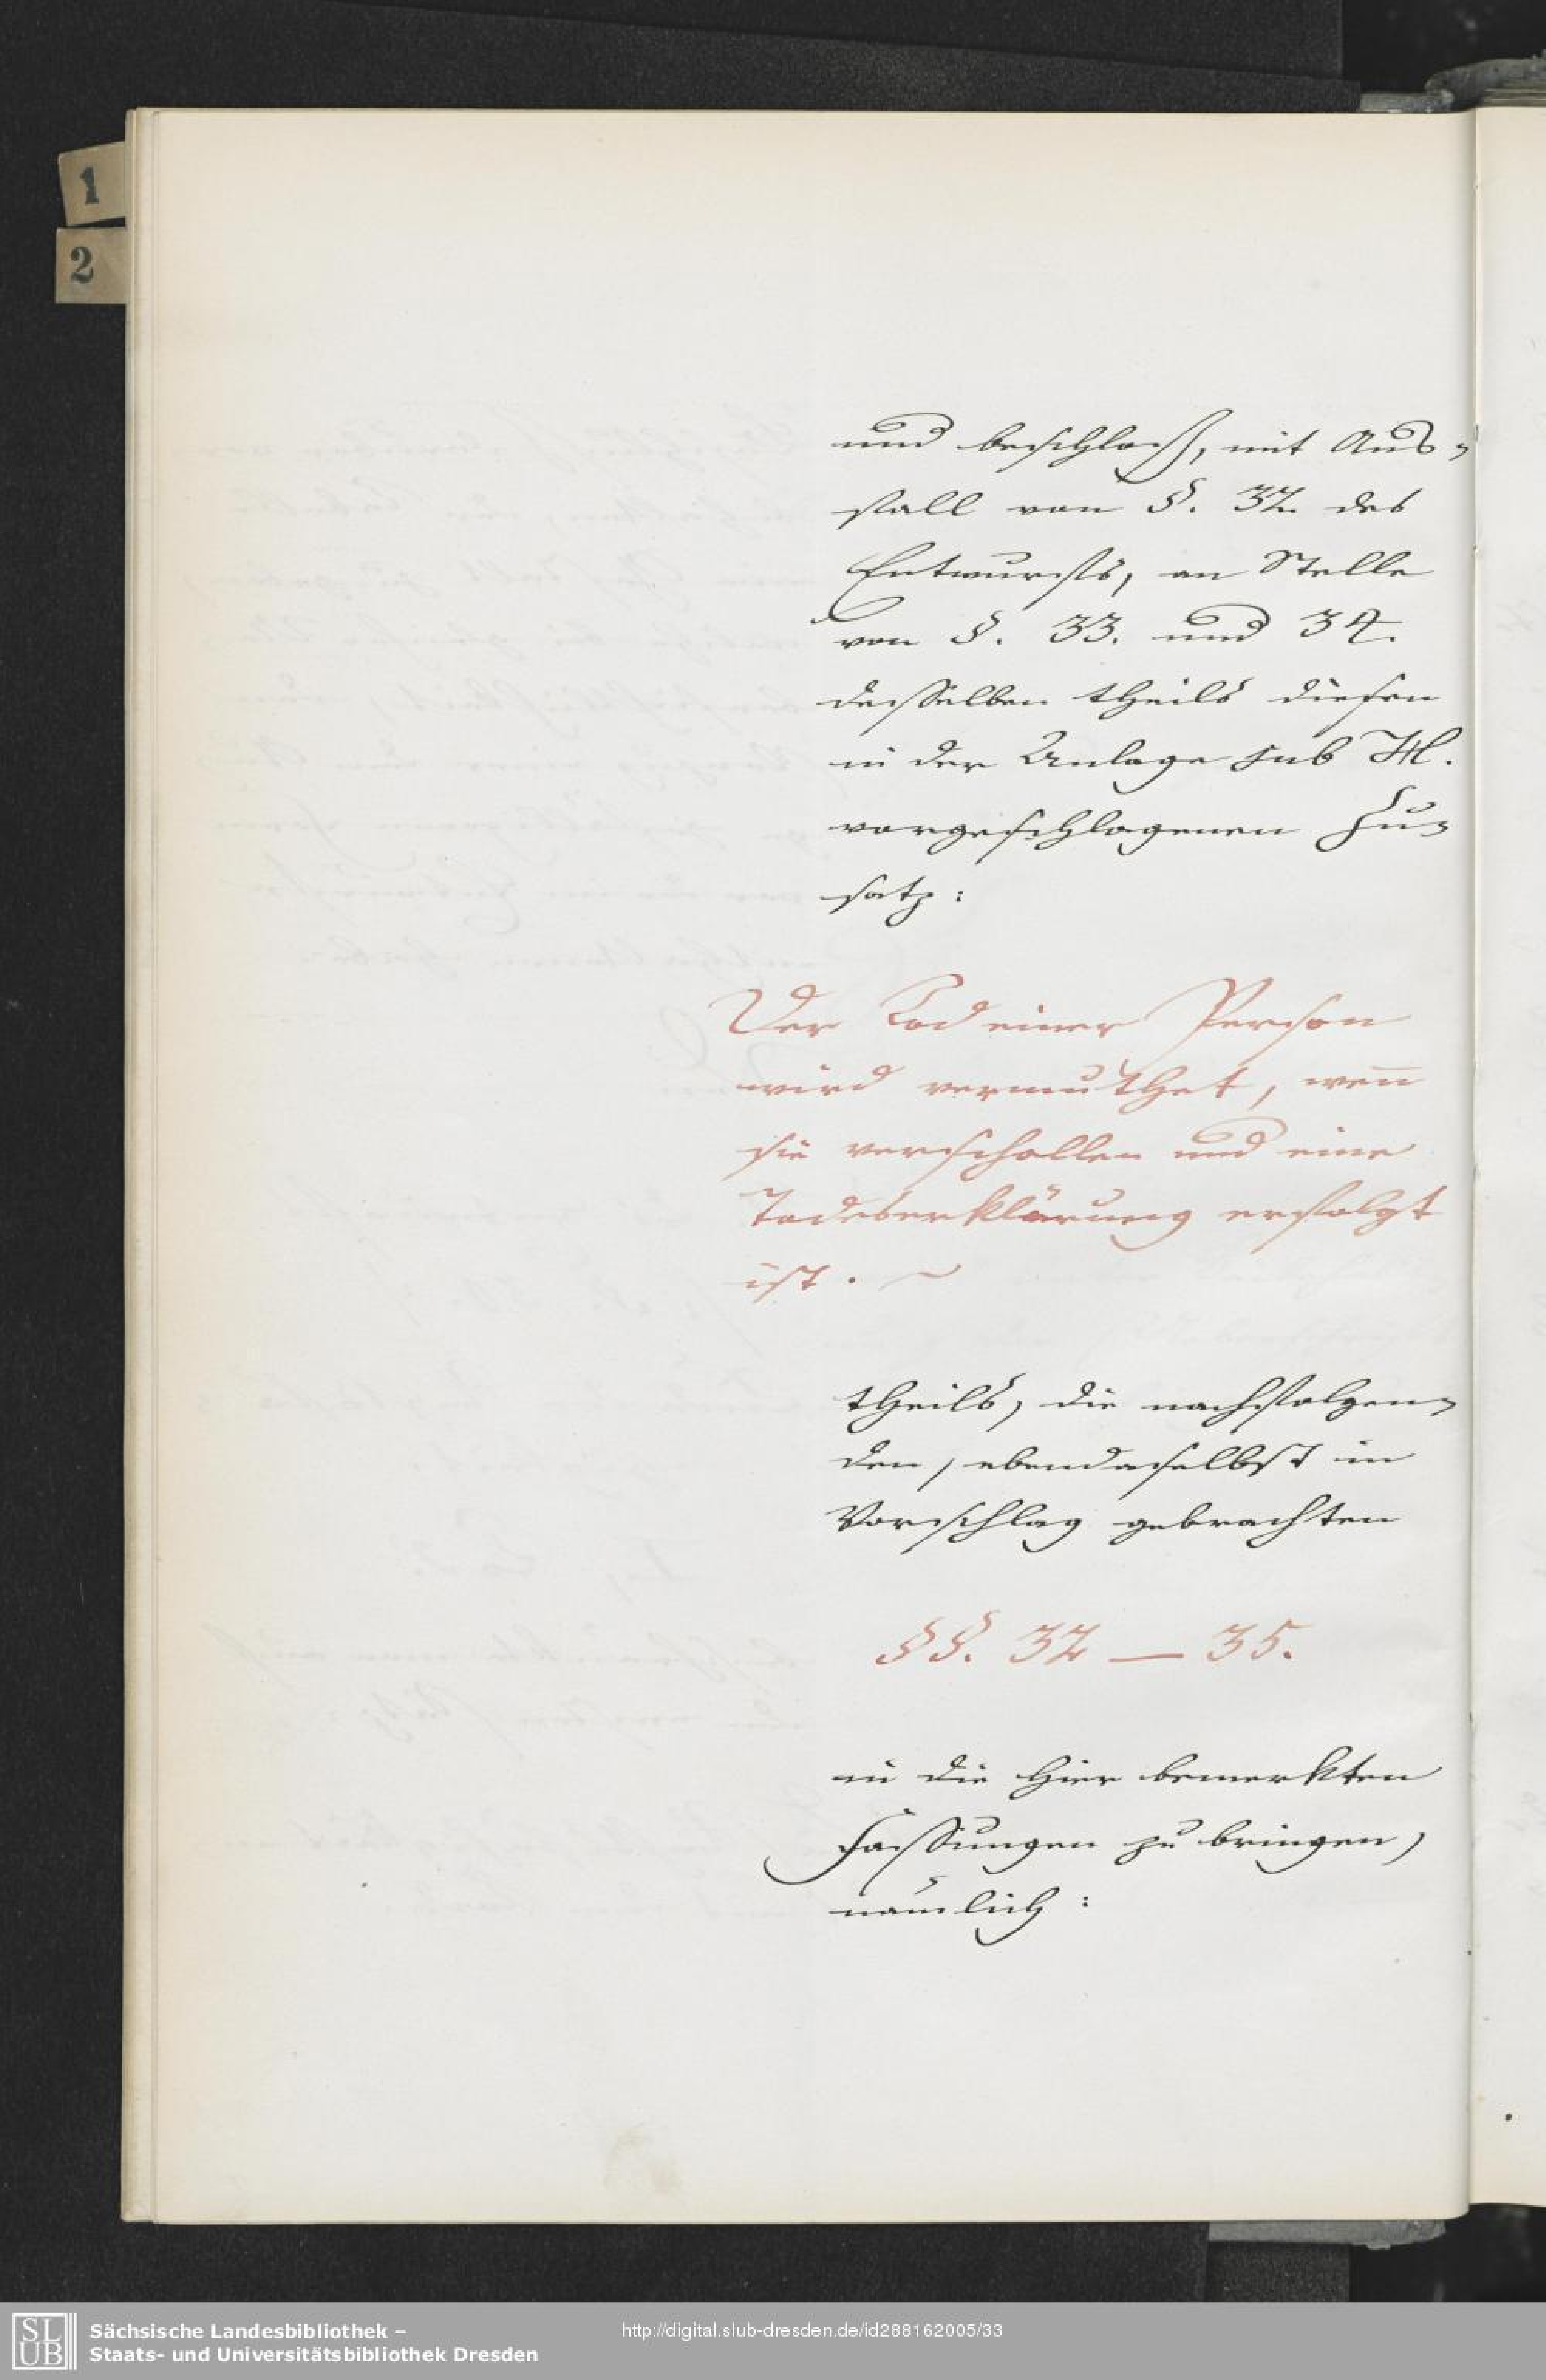 1
2
und beschloß, mit Aus-
fall von §. 32. des
Entwurfs, an Stelle
von §. 33. und 34.
desselben theils diesen
in der Anlage sub M.
vorgeschlagenen Zu-
satz:
Der Tod einer Person
wird vermuthet, weñ
sie verschollen und eine
Todeserklärung erfolgt
ist. ~
theils, die nachfolgen-
den, ebendaselbst in
Vorschlag gebrachten
§§. 32 — 35.
in die hier bemerkten
Fassungen zu bringen,
nämlich:
SLUB
Sächsische Landesbibliothek –
Staats- und Universitätsbibliothek Dresden
http://digital.slub-dresden.de/id288162005/33